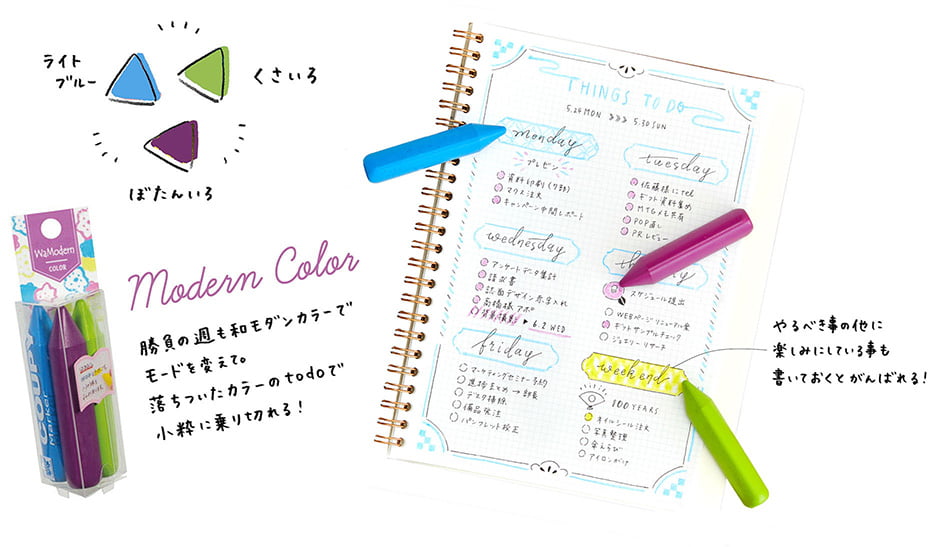 ライト
ブルー
くさいろ
ぼたんいろ
WaModern
COLOR
COUPY
Marker
Modern Color
勝負の週も和モダンカラーで
モードを変えて。
落ちついたカラーのtodoで
小粋に乗り切れる!
THINGS TO DO
5.24 MON >>> 5.30 SUN
monday
プレゼン
資料印刷(7部)
マウス注文
キャンペーン中間レポート
tuesday
佐藤様にtel
ギフト資料集め
MTGメモ共有
POP直し
PRレビュー
wednesday
アンケートデータ集計
請求書
誌面デザイン赤字入れ
高橋様アポ
6.2 WED
th
スケジュール提出
WEBページリニューアル案
ギフトサンプルチェック
ジュエリーリサーチ
friday
マーケティングセミナー予約
進捗まとめ→部長
デスク掃除
備品発注
パンフレット校正
weekend
100 YEARS
ネイルシール注文
写真整理
傘えらび
アイロンがけ
やるべき事の他に
楽しみにしている事も
書いておくとがんばれる!